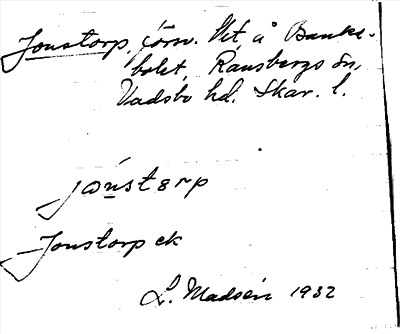 Jonstorp, försv. Nt å Banke-
bolet, Ransbergs sn,
Vadsbo hd. Skar. l.
jώnstɵrp
Jonstorp ek
L. Madsén 1932